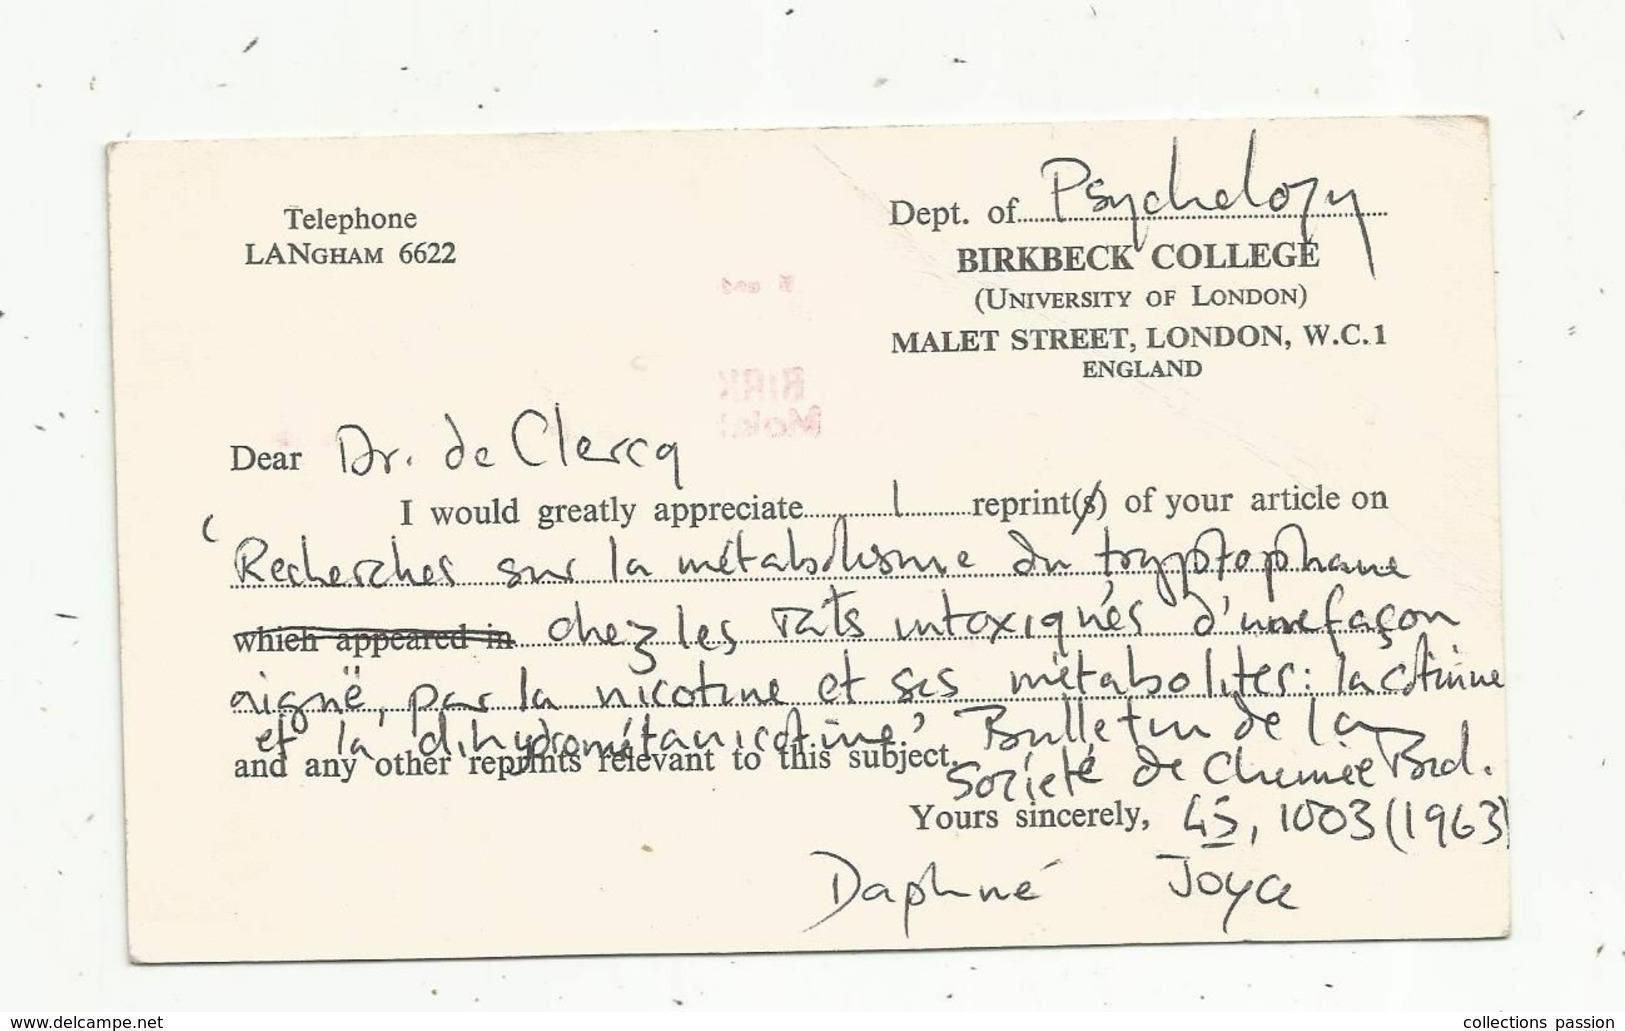 Telephone
LANGHAM 6622
Dept. of Psychology
BIRKBECK COLLEGE
(UNIVERSITY OF LONDON)
MALET STREET, LONDON, W.C.1
ENGLAND
Dear Dr. de Clercq
I would greatly appreciate 1 reprint(s) of your article on
'Recherches sur la métabolisme du tryptophane
which appeared in chez les rats intoxiqués d'une façon
aiguë, par la nicotine et ses métabolites: la cotinine
et la dihydrométanicotine' Bulletin de la
and any other reprints relevant to this subject.
Société de Chemie Biol.
Yours sincerely, 45, 1003 (1963)
Daphné Joyce
www.delcampe.net
collections passion